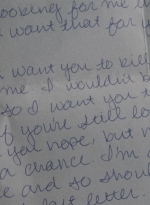 looking for me
want that for
want you to
me I wouldn't
so I want you t
f you're still lo
you nope, but
a chance. I'm
e and so shou
last letter.